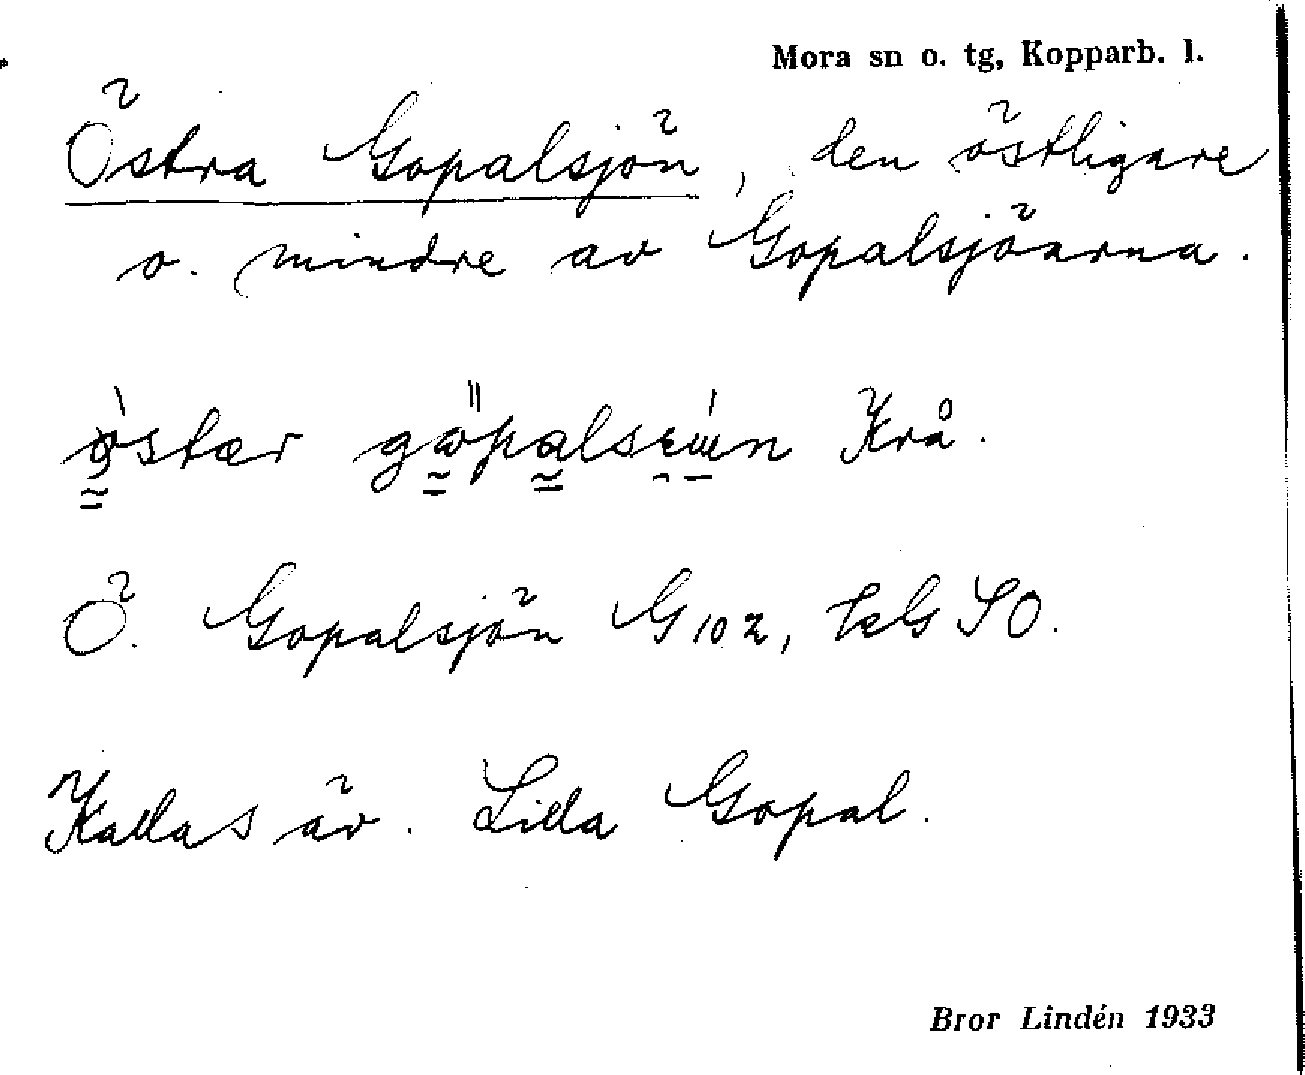 Mora sn o. tg, Kopparb. l.
Östra Gopalsjön, den östligare
o. mindre av Gopalsjöarna.
Krå.
Ö. Gopalsjön G 102, SO.
Kallas äv. Lilla Gopal.
Bror Lindén 1933